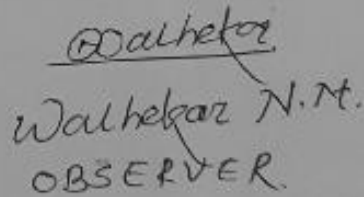 Walhekar
Walhekar N.M.
OBSERVER.